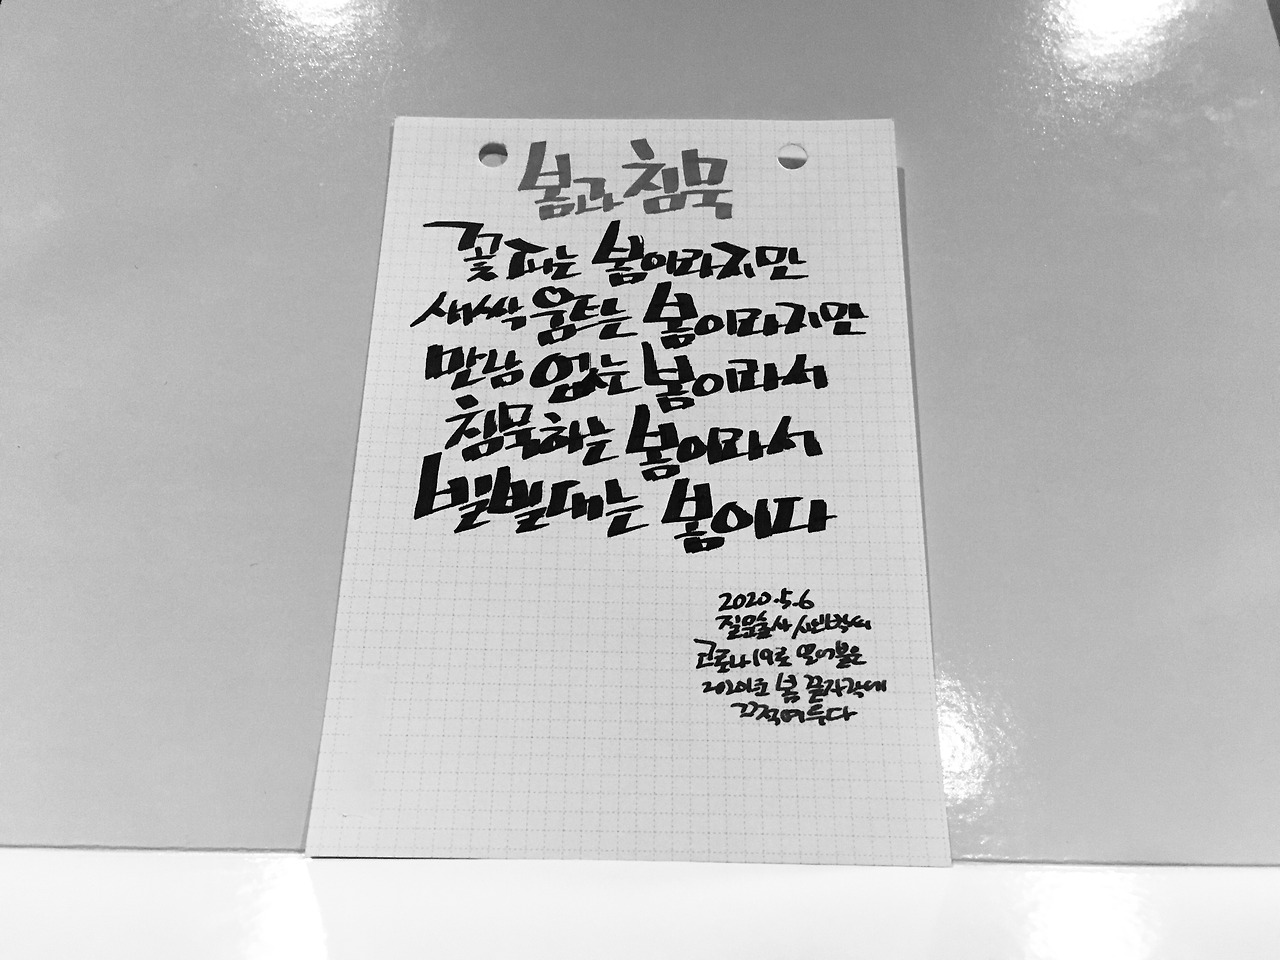 봄과 침묵
꽃 피는 봄이라지만
새싹 움트는 봄이라지만
만남 없는 봄이라서
침묵하는 봄이라서
빌빌대는 봄이다
2020.5.6
질문술사
코로나19로
봄 끝자락에
끄적여 두다